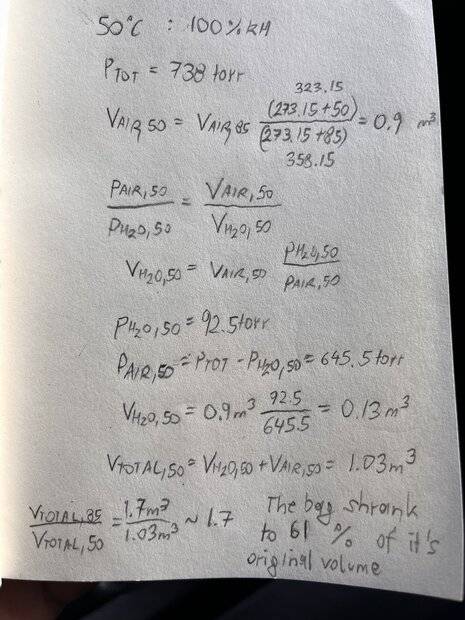 50°C : 100% RH
PTOT = 738 torr
323.15
VAIR,50 = VAIR,85 (273.15+50)/(273.15+85) = 0.9 m³
358.15
PAIR,50/PH2O,50 = VAIR,50/VH2O,50
VH2O,50 = VAIR,50 PH2O,50/PAIR,50
PH2O,50 = 92.5 torr
PAIR,50 = PTOT - PH2O,50 = 645.5 torr
VH2O,50 = 0.9m³ 92.5/645.5 = 0.13 m³
VTOTAL,50 = VH2O,50 + VAIR,50 = 1.03m³
VTOTAL,85/VTOTAL,50 = 1.7m³/1.03m³ ~ 1.7
The bag shrank
to 61 % of it's
original volume